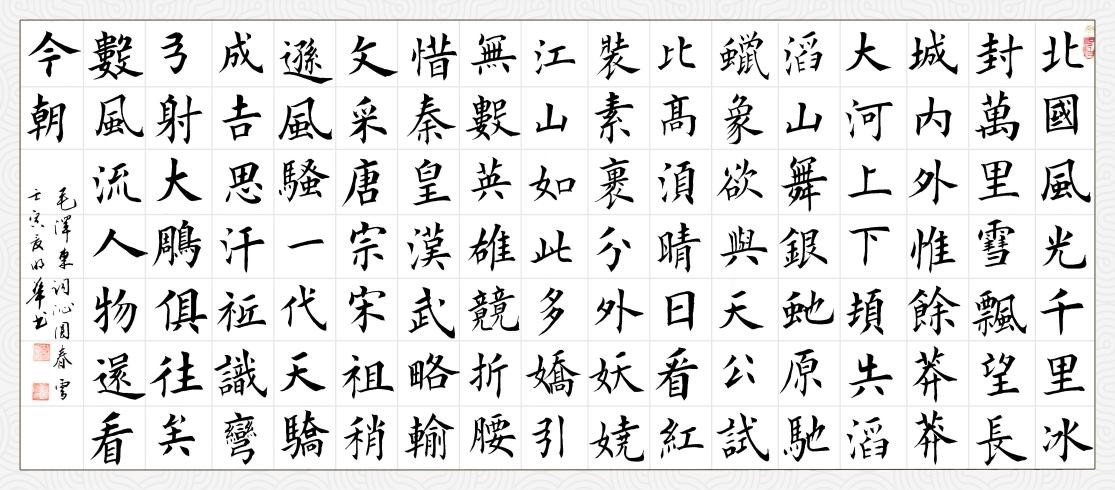 北國風光千里冰
封萬里雪飄望長
城内外惟餘莽莽
大河上下頓失滔
滔山舞銀虵原馳
蠟象欲與天公試
比髙須晴日看紅
裝素裹分外妖嬈
江山如此多嬌引
無數英雄競折腰
惜秦皇漢武略輸
文采唐宗宋祖稍
遜風騷一代天驕
成吉思汗祇識彎
弓射大鵰俱往矣
數風流人物還看
今朝
毛澤東詞沁園春雪
壬寅夏明華书